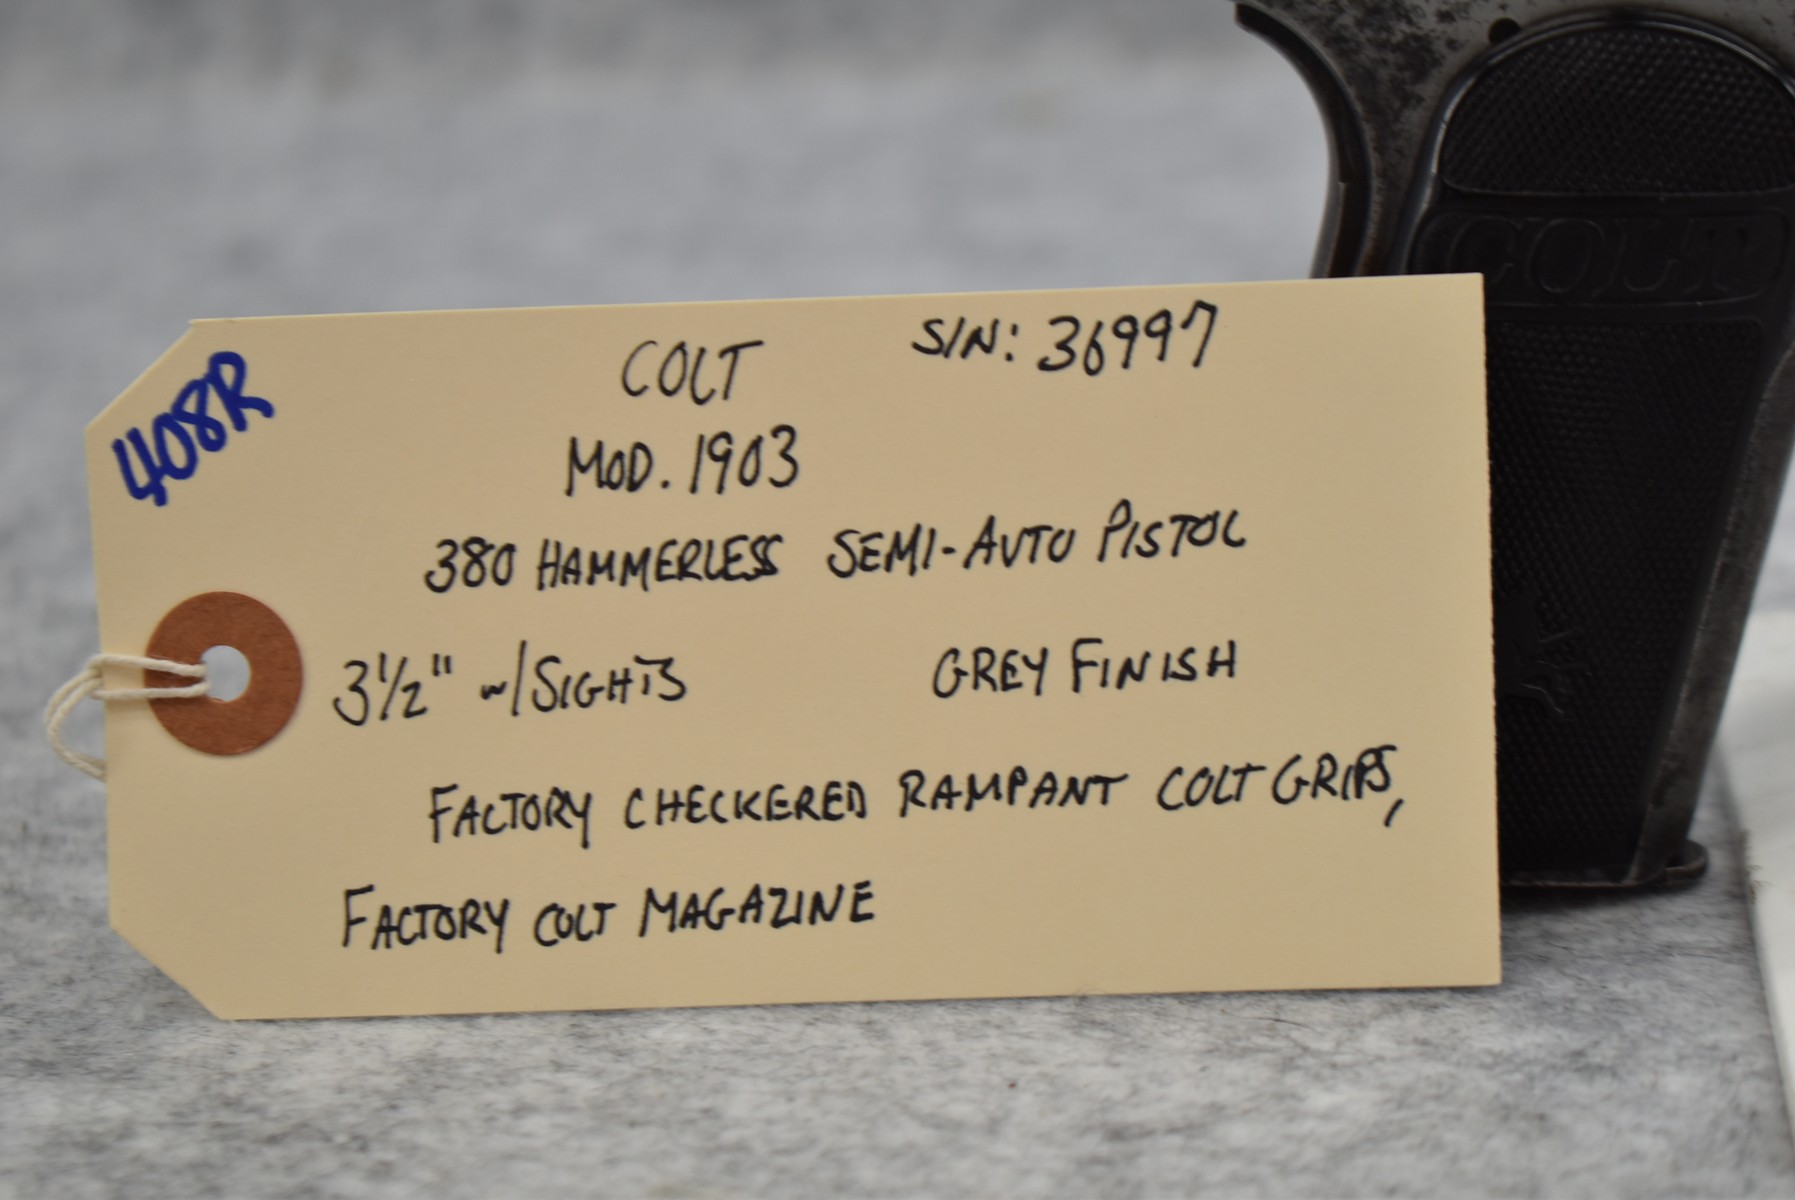 408R
COLT S/N: 36997
MOD. 1903
380 HAMMERLESS SEMI-AUTO PISTOL
3½" w/SIGHTS GREY FINISH
FACTORY CHECKERED RAMPANT COLT GRIPS,
FACTORY COLT MAGAZINE
COLT